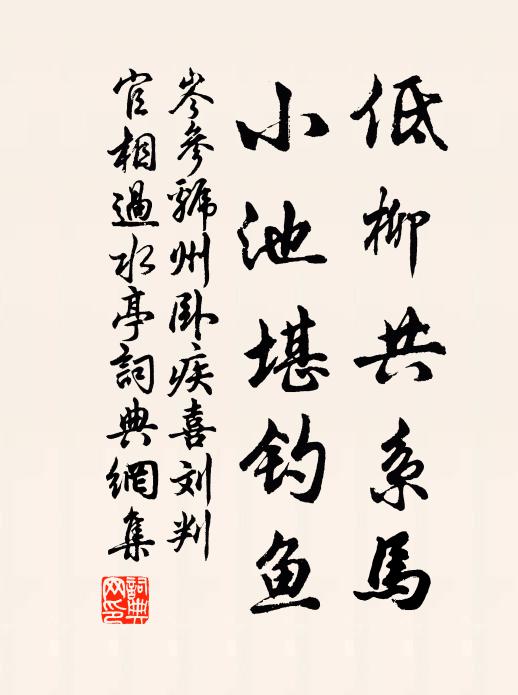 低柳共系馬
小池堪钓鱼
岑參虢州卧疾喜刘判
官相過水亭詞典網集
詞典网印